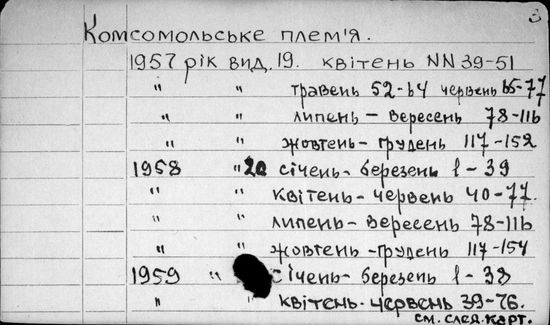 Комсомольське плем'я.
1957 рік вид. 19. квітень NN 39-51
" " травень 52-64 червень 65-77
" " липень - вересень 78-116
" " жовтень - грудень 117-152
1958 " 20 січень - березень 1-39
" " квітень - червень 40-77.
" " липень - вересень 78-116
" " жовтень - грудень 117-154
1959 " січень - березень 1-38
" " квітень - червень 39-76.
см. след. карт.